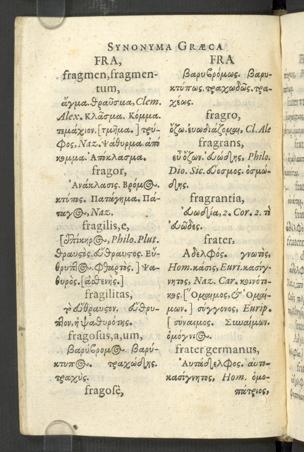 SYNONYMA GRÆCA
FRA,
fragmen, fragmen-
tum,
ἄγμα. θραῦσμα, Clem.
Alex. Κλάσμα. Κόμμα.
τμμάχιον. [τμῆμα.] τρύ-
φος, Naz. Ψάθυρμα. ἀπό
κομμα. Ἀπόκλασμα.
fragor,
Ἀνάκλασις. Βρόμος.
κτύπος. Παπάγημα. Πά-
παγος, Naz.
fragilis, e,
Philo. Plut.
θραυστὸς. εὔθραυστος. Εὔ-
θρυπτος. Φθαρτὸς.] Ψα-
θυρὸς. [ἀσθενὴς.]
fragilitas,
τὸ εὔθραυστον. εὔθρυ-
πτον. ἡ ψαθυρότης.
fragosus, a, um,
βαρύβρομος. βαρύ-
κτυπος. τραχώδης.
τραχύς.
fragosè,
FRA
βαρυβρόμως. βαρυ-
κτύπως. τραχωδῶς. τρα-
χέως.
fragro,
ὄζω. εὐωδιάζομαι, Cl. Ale
fragrans,
εὖ ὄζων. εὐώδης, Philo.
Dio. Sic. εὔοσμος. ὀσμώ-
δης.
fragrantia,
εὐωδία, 2. Cor. 2. τὸ
εὐῶδες.
frater.
Ἀδελφὸς. γνωτὸς,
Hom. κάσις, Eurι. κασίγ-
νητος, Naz. Car. κοινότι-
κος. [Ὅμαιμος, & Ὁμαί-
μων.] σύγγονος, Eurip.
[σύναιμος. Συναίμων.
ὁμόγνιος.
frater germanus,
Αὐτάδελφος. αὐτο-
κασίγνητος, Hom. ὁμο-
πάτριος,